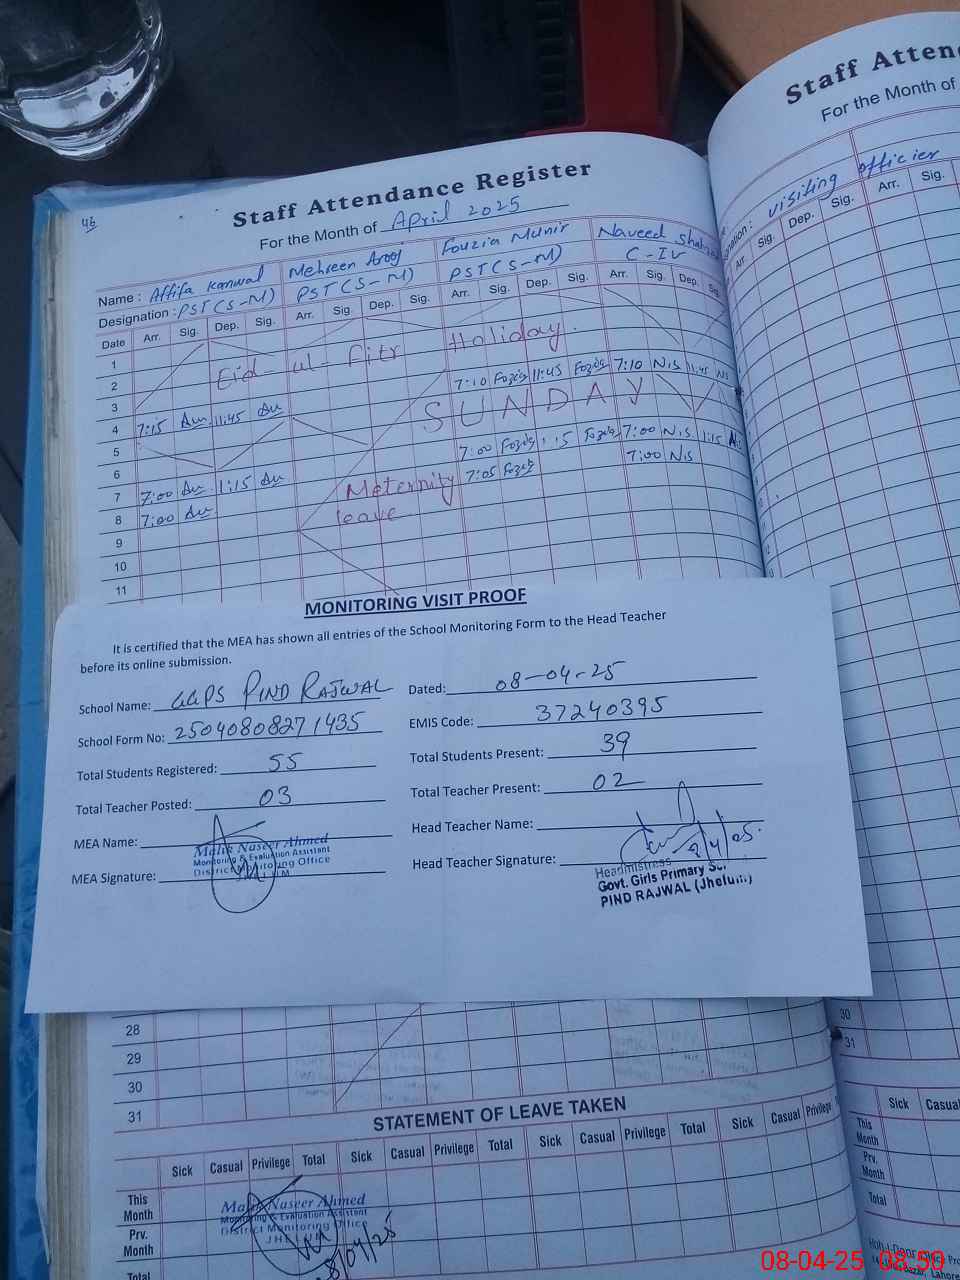 46
Staff Attendance Register
For the Month of April 2025
Name : Affifa Kanwal Mehreen Arooj Fouzia Munir Naveed
Designation : PST (S-M) PST (S-M) PST (S-M) C-IV
Date Arr. Sig. Dep. Sig. Arr. Sig. Dep. Sig. Arr. Sig. Dep. Sig. Arr. Sig. Dep. Sig.
1
2 Eid-ul-Fitr Holiday.
3
4 7:15 11:45 7:10 Fozia 11:45 Fozia 7:10 Nis 11:45 Nis
5 SUNDAY
6
7 7:00 1:15 7:00 Fozia Fozia 7:00 Nis 1:15
8 7:00 Meternity leave 7:05 Fozia 7:00 Nis
9
10
11
MONITORING VISIT PROOF
It is certified that the MEA has shown all entries of the School Monitoring Form to the Head Teacher
before its online submission.
School Name: GGPS PIND RAJWAL Dated: 08-04-25
School Form No: 25040808271435 EMIS Code: 37240395
Total Students Registered: 55 Total Students Present: 39
Total Teacher Posted: 03 Total Teacher Present: 02
MEA Name: Head Teacher Name:
Malik Naseer Ahmed
Monitoring & Evaluation Assistant
District Monitoring Office
MEA Signature: Head Teacher Signature:
Headmistress
Govt. Girls Primary
PIND RAJWAL (Jhelum)
28
29
30
31
STATEMENT OF LEAVE TAKEN
Sick Casual Privilege Total Sick Casual Privilege Total Sick Casual Privilege Total Sick Casual Privilege
This Month
Prv. Month
Total
Malik Naseer Ahmed
Monitoring & Evaluation Assistant
District Monitoring Office
8/04/25
Staff Atten
For the Month of
visiting officier
Arr. Sig. Dep. Sig. Arr. Sig.
30
31
Sick Casual
This Month
Prv. Month
Total
08-04-25 08:50